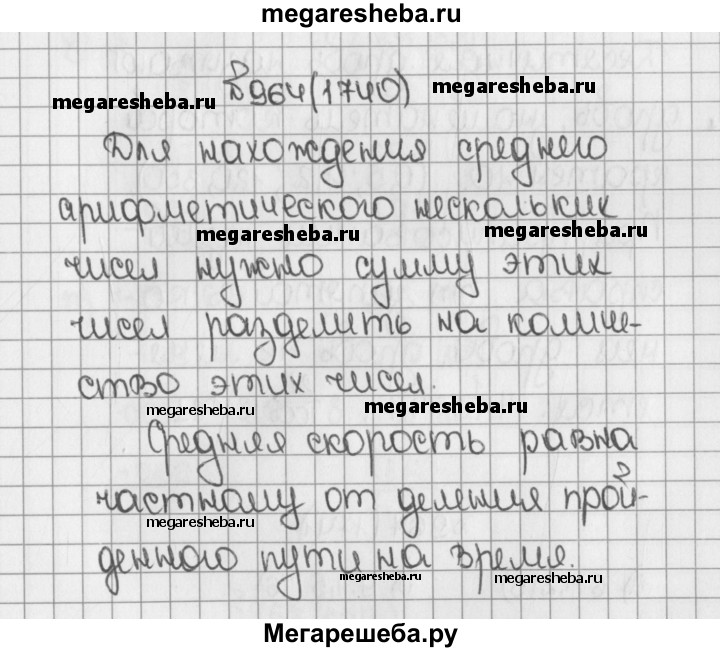 megaresheba.ru
964(1740)
megaresheba.ru
megaresheba.ru
Для нахождения среднего
арифметического нескольких
megaresheba.ru
megaresheba.ru
чисел нужно сумму этих
чисел разделить на количе-
ство этих чисел.
megaresheba.ru
megaresheba.ru
Средняя скорость равна
частному от деления прой-
megaresheba.ru
денного пути на время.
megaresheba.ru
megaresheba.ru
Мегарешеба.ру